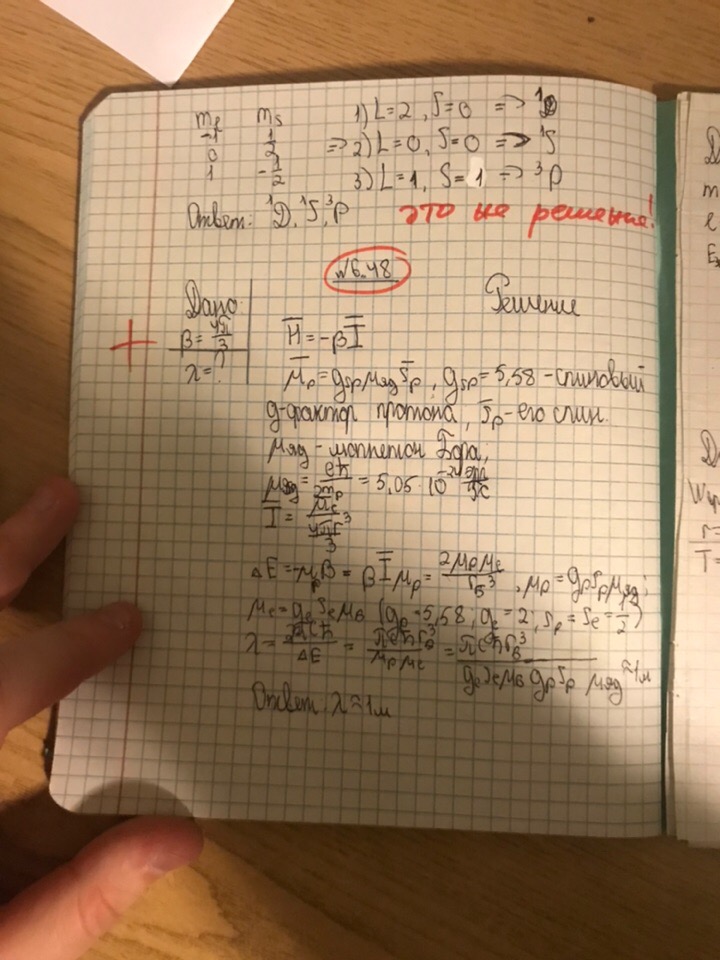 m_ℓ m_s 1) L=2, S=0 => ¹D
-1 1/2
0 1/2 => 2) L=0, S=0 => ¹S
1 -1/2 3) L=1, S=1 => ³P
Ответ: ¹D, ¹S, ³P это не решение!
№6.48
Дано: Решение
β = 4π/3
λ = ?
H̄ = -βĪ
μ̄_p = g_sp μ_яд s̄_p, g_sp = 5,58 - спиновый
g-фактор протона, s̄_p - его спин.
μ_яд - магнетон Бора,
μ_яд = eħ/2m_p = 5,05·10⁻²⁴ эрг/Гс
Ī = μ̄_e/(4πr³/3)
ΔE = -μ_p B = βĪμ_p = 2μ_pμ_e/r_B³, μ_p = g_p s_p μ_яд;
μ_e = g_e s_e μ_B (g_p = 5,58, g_e = 2; s_p = s_e = 1/2)
λ = 2πcħ/ΔE = πcħr_B³/μ_pμ_e = πcħr_B³/g_e s_e μ_B g_p s_p μ_яд ≈ 1м
Ответ: λ ≈ 1м